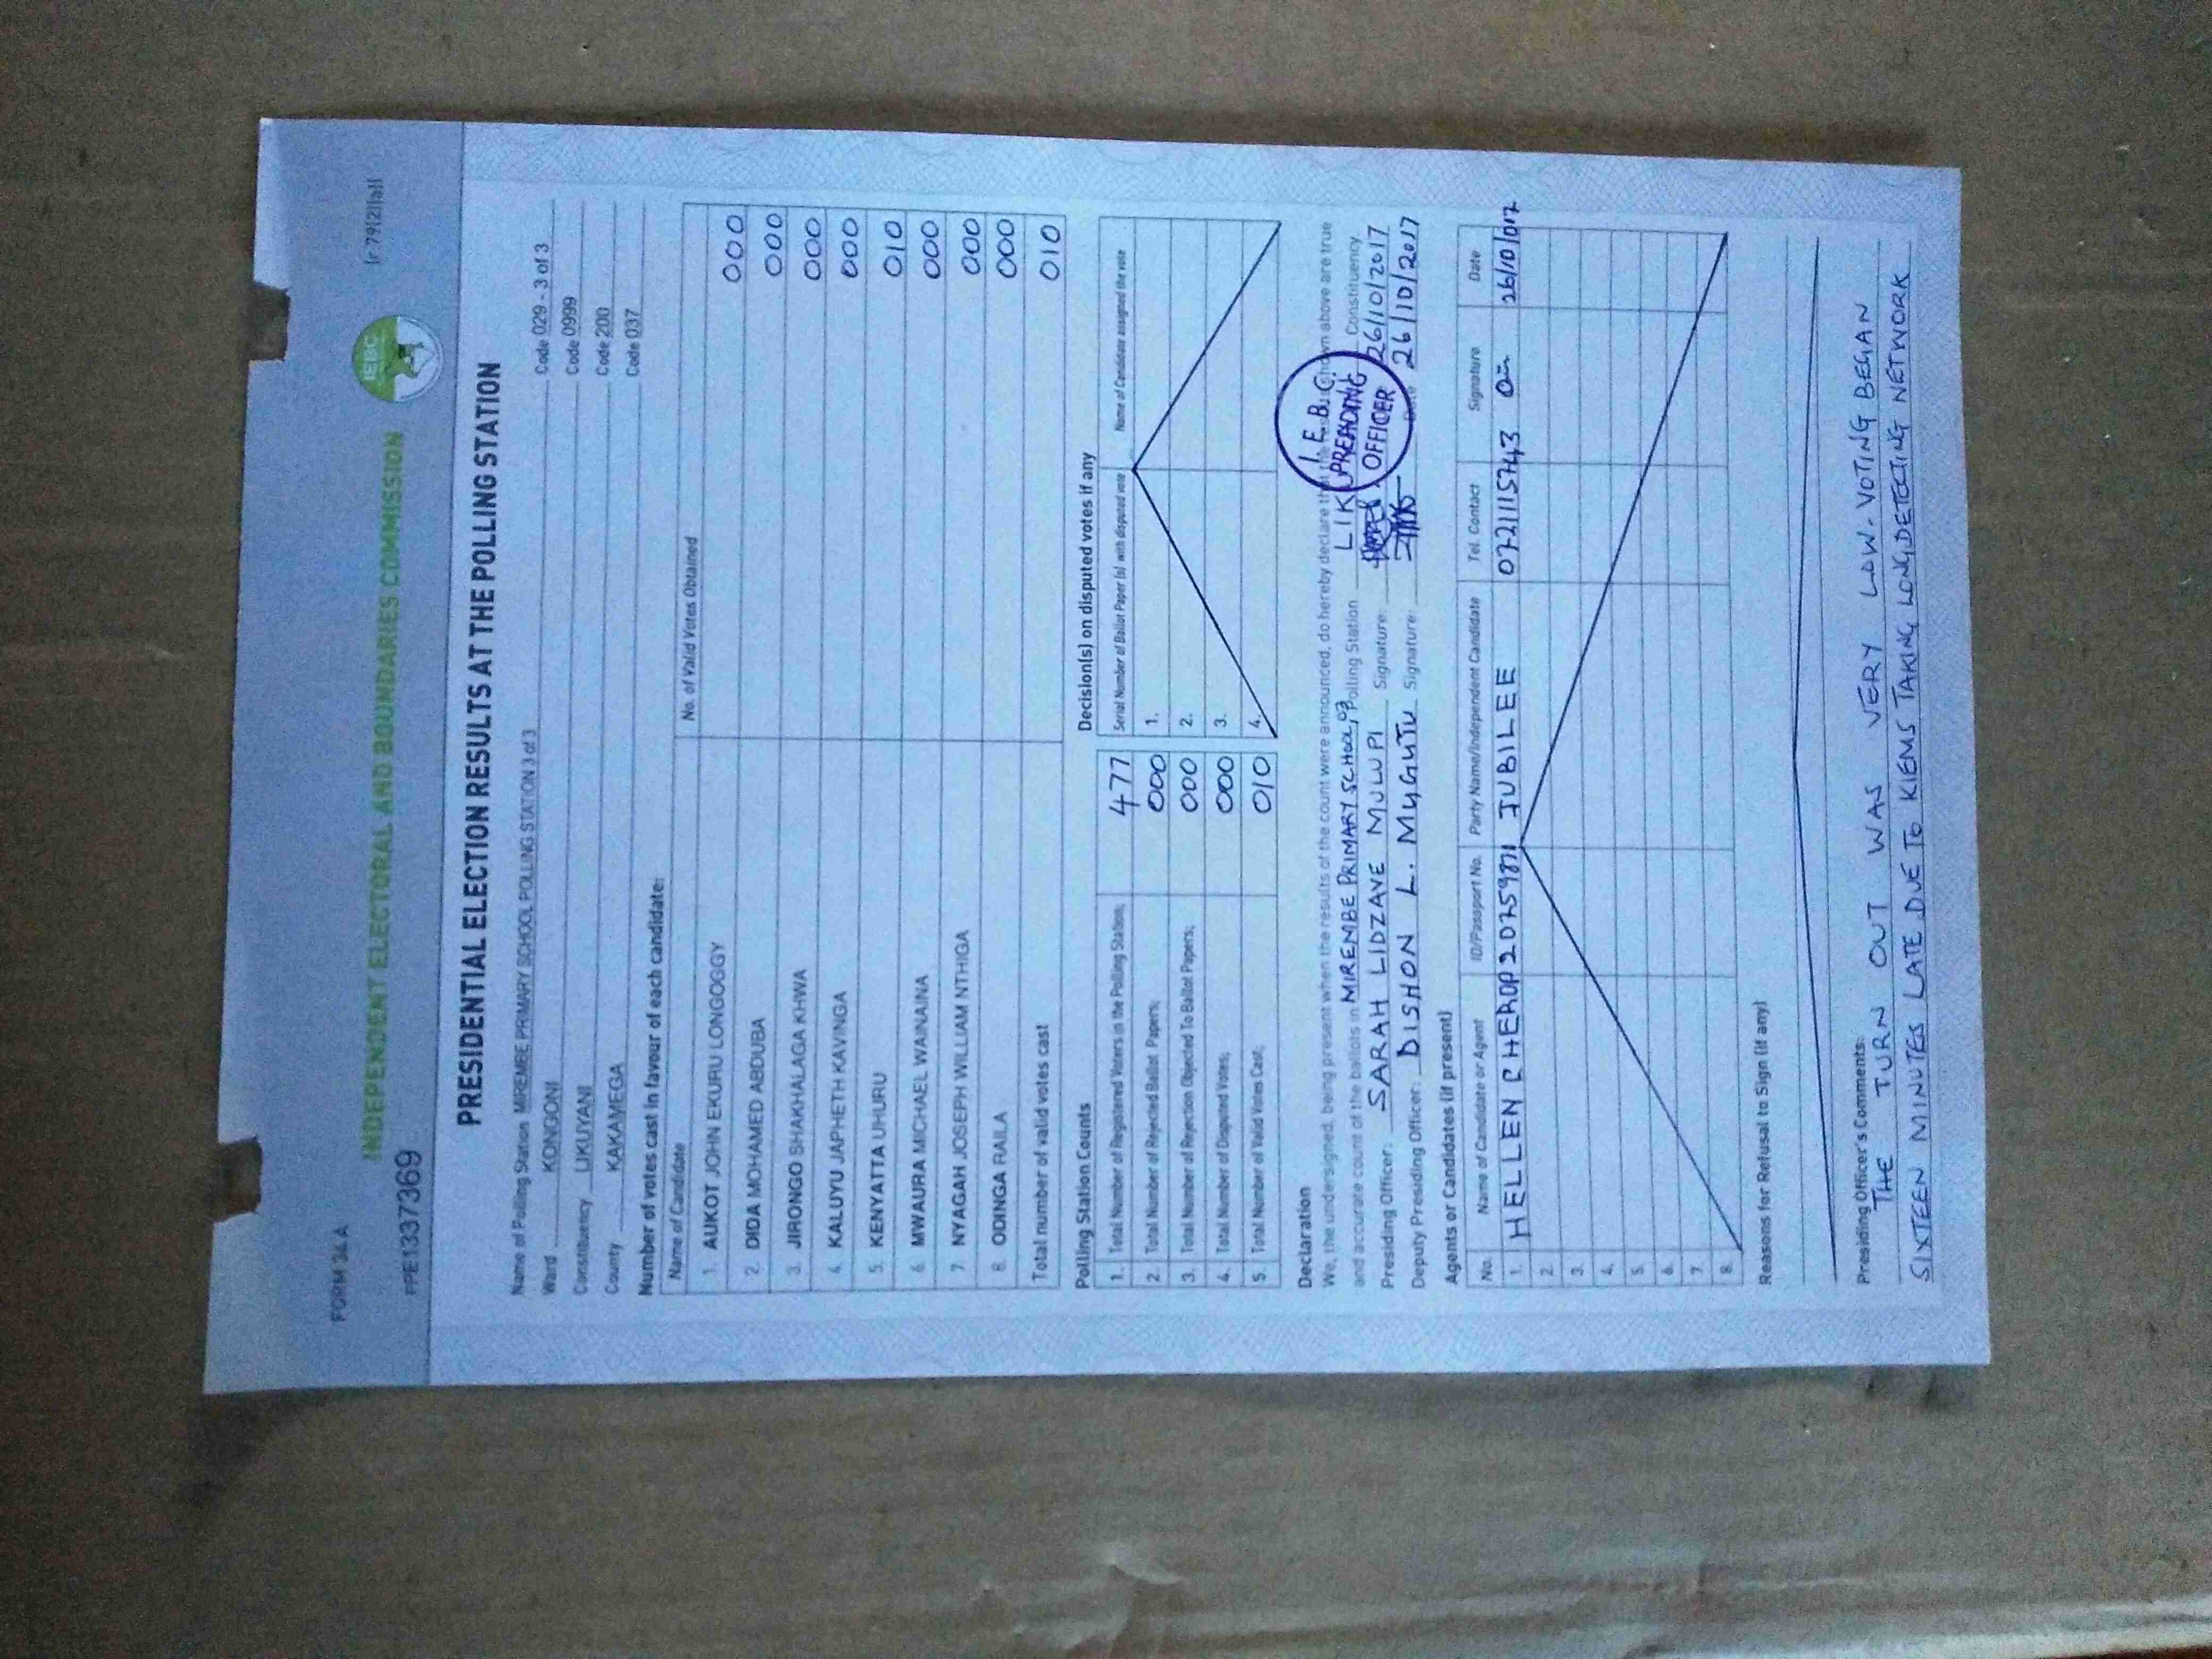 FORM 34 A
(r 79(2)(a))
INDEPENDENT ELECTORAL AND BOUNDARIES COMMISSION
IEBC
PRE1337369
PRESIDENTIAL ELECTION RESULTS AT THE POLLING STATION
Name of Polling Station MIREMBE PRIMARY SCHOOL POLLING STATION 3 of 3 Code 029 - 3 of 3
Ward KONGONI Code 0999
Constituency LIKUYANI Code 200
County KAKAMEGA Code 037
Number of votes cast in favour of each candidate:
Name of Candidate No. of Valid Votes Obtained
1. AUKOT JOHN EKURU LONGOGGY 000
2. DIDA MOHAMED ABDUBA 000
3. JIRONGO SHAKHALAGA KHWA 000
4. KALUYU JAPHETH KAVINGA 000
5. KENYATTA UHURU 010
6. MWAURA MICHAEL WAINAINA 000
7. NYAGAH JOSEPH WILLIAM NTHIGA 000
8. ODINGA RAILA 000
Total number of valid votes cast 010
Polling Station Counts
1. Total Number of Registered Voters in the Polling Station; 477
2. Total Number of Rejected Ballot Papers; 000
3. Total Number of Rejection Objected To Ballot Papers; 000
4. Total Number of Disputed Votes; 000
5. Total Number of Valid Votes Cast; 010
Decision(s) on disputed votes if any
Serial Number of Ballot Paper (s) with disputed vote Name of Candidate assigned the vote
1.
2.
3.
4.
Declaration
We, the undersigned, being present when the results of the count were announced, do hereby declare that the shown above are true
and accurate count of the ballots in MIREMBE PRIMARY SCHOOL, Polling Station Constituency
Presiding Officer: SARAH LIDZAVE MULUPI Signature: 26/10/2017
Deputy Presiding Officer: DISHON L. MUGUTU Signature: Date 26/10/2017
I.E.B.C.
OFFICER
Agents or Candidates (if present)
No. Name of Candidate or Agent ID/Passport No. Party Name/Independent Candidate Tel. Contact Signature Date
1. HELLEN CHEROP JUBILEE 0721115743 26/10/017
2.
3.
4.
5.
6.
7.
8.
Reasons for Refusal to Sign (if any)
Presiding Officer's Comments:
THE TURN OUT WAS VERY LOW. VOTING BEGAN
SIXTEEN MINUTES LATE DUE TO KIEMS TAKING LONG DETECTING NETWORK